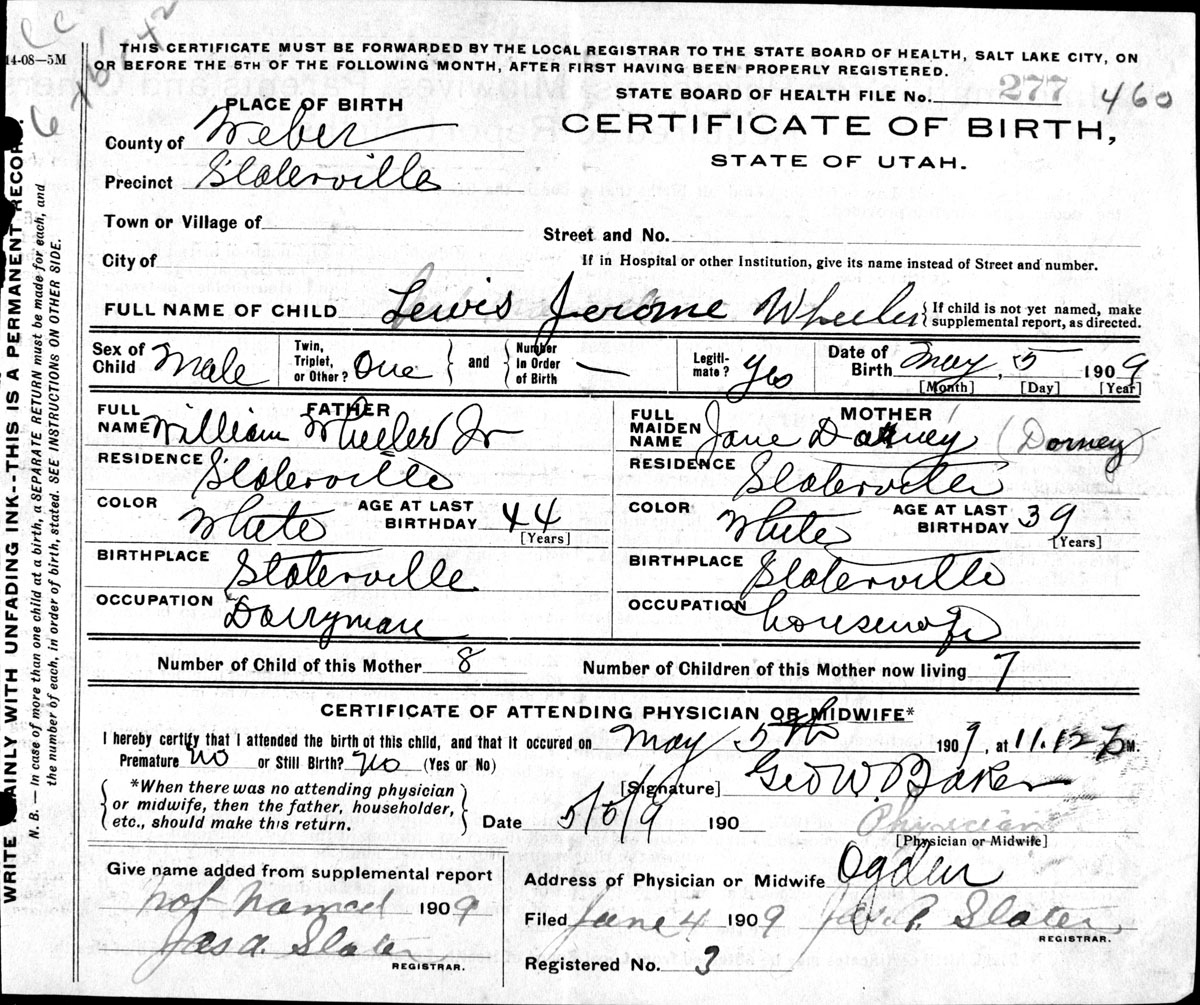 14-08—5M
THIS CERTIFICATE MUST BE FORWARDED BY THE LOCAL REGISTRAR TO THE STATE BOARD OF HEALTH, SALT LAKE CITY, ON
OR BEFORE THE 5TH OF THE FOLLOWING MONTH, AFTER FIRST HAVING BEEN PROPERLY REGISTERED.
STATE BOARD OF HEALTH FILE No. 277 460
PLACE OF BIRTH
CERTIFICATE OF BIRTH,
STATE OF UTAH.
County of Weber
Precinct Slaterville
Town or Village of
Street and No.
City of
If in Hospital or other Institution, give its name instead of Street and number.
FULL NAME OF CHILD Lewis Jerome Wheeler { If child is not yet named, make
supplemental report, as directed.
Sex of Child Male Twin, Triplet, or Other? One } and { Number In Order of Birth — Legiti-mate? Yes Date of Birth May, 5 1909
[Month] [Day] [Year]
FATHER MOTHER
FULL NAME William Wheeler Jr FULL MAIDEN NAME Jane Darney (Dorney)
RESIDENCE Slaterville RESIDENCE Slaterville
COLOR White AGE AT LAST BIRTHDAY 44 [Years] COLOR White AGE AT LAST BIRTHDAY 39 [Years]
BIRTHPLACE Slaterville BIRTHPLACE Slaterville
OCCUPATION Darryman OCCUPATION housewife
Number of Child of this Mother 8 Number of Children of this Mother now living 7
CERTIFICATE OF ATTENDING PHYSICIAN OR MIDWIFE*
I hereby certify that I attended the birth of this child, and that it occured on May 5th 1909, at 11.12 M.
Premature No or Still Birth? No (Yes or No)
[Signature] Geo W. Baker
{ *When there was no attending physician
or midwife, then the father, householder,
etc., should make this return. }
Date 5/5/9 190
Physician
[Physician or Midwife]
Give name added from supplemental report
Address of Physician or Midwife Ogden
Not Named 1909
Filed June 4 1909 Jas. A. Slater
REGISTRAR.
Jas A. Slater
REGISTRAR.
Registered No. 3
WRITE PLAINLY WITH UNFADING INK--THIS IS A PERMANENT RECORD.
N. B. — In case of more than one child at a birth, a SEPARATE RETURN must be made for each, and
the number of each, in order of birth, stated. SEE INSTRUCTIONS ON OTHER SIDE.